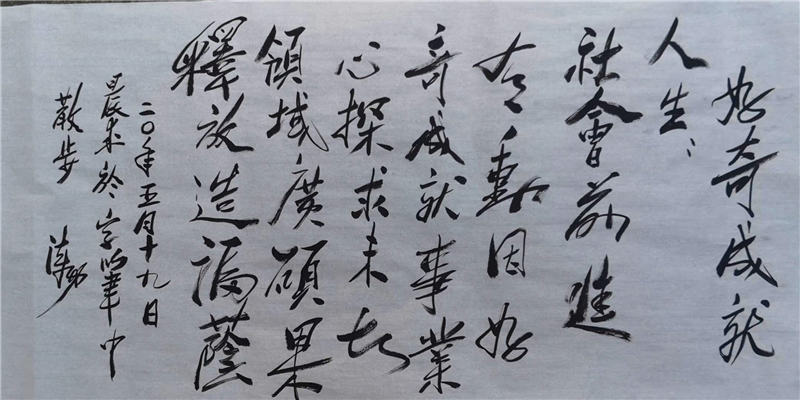 好奇成就
人生：
社會前進
有動因好
奇成就事業
心探求未知
領域廣碩果
釋放造福蔭
二〇年五月十九日
晨於筆中
散步